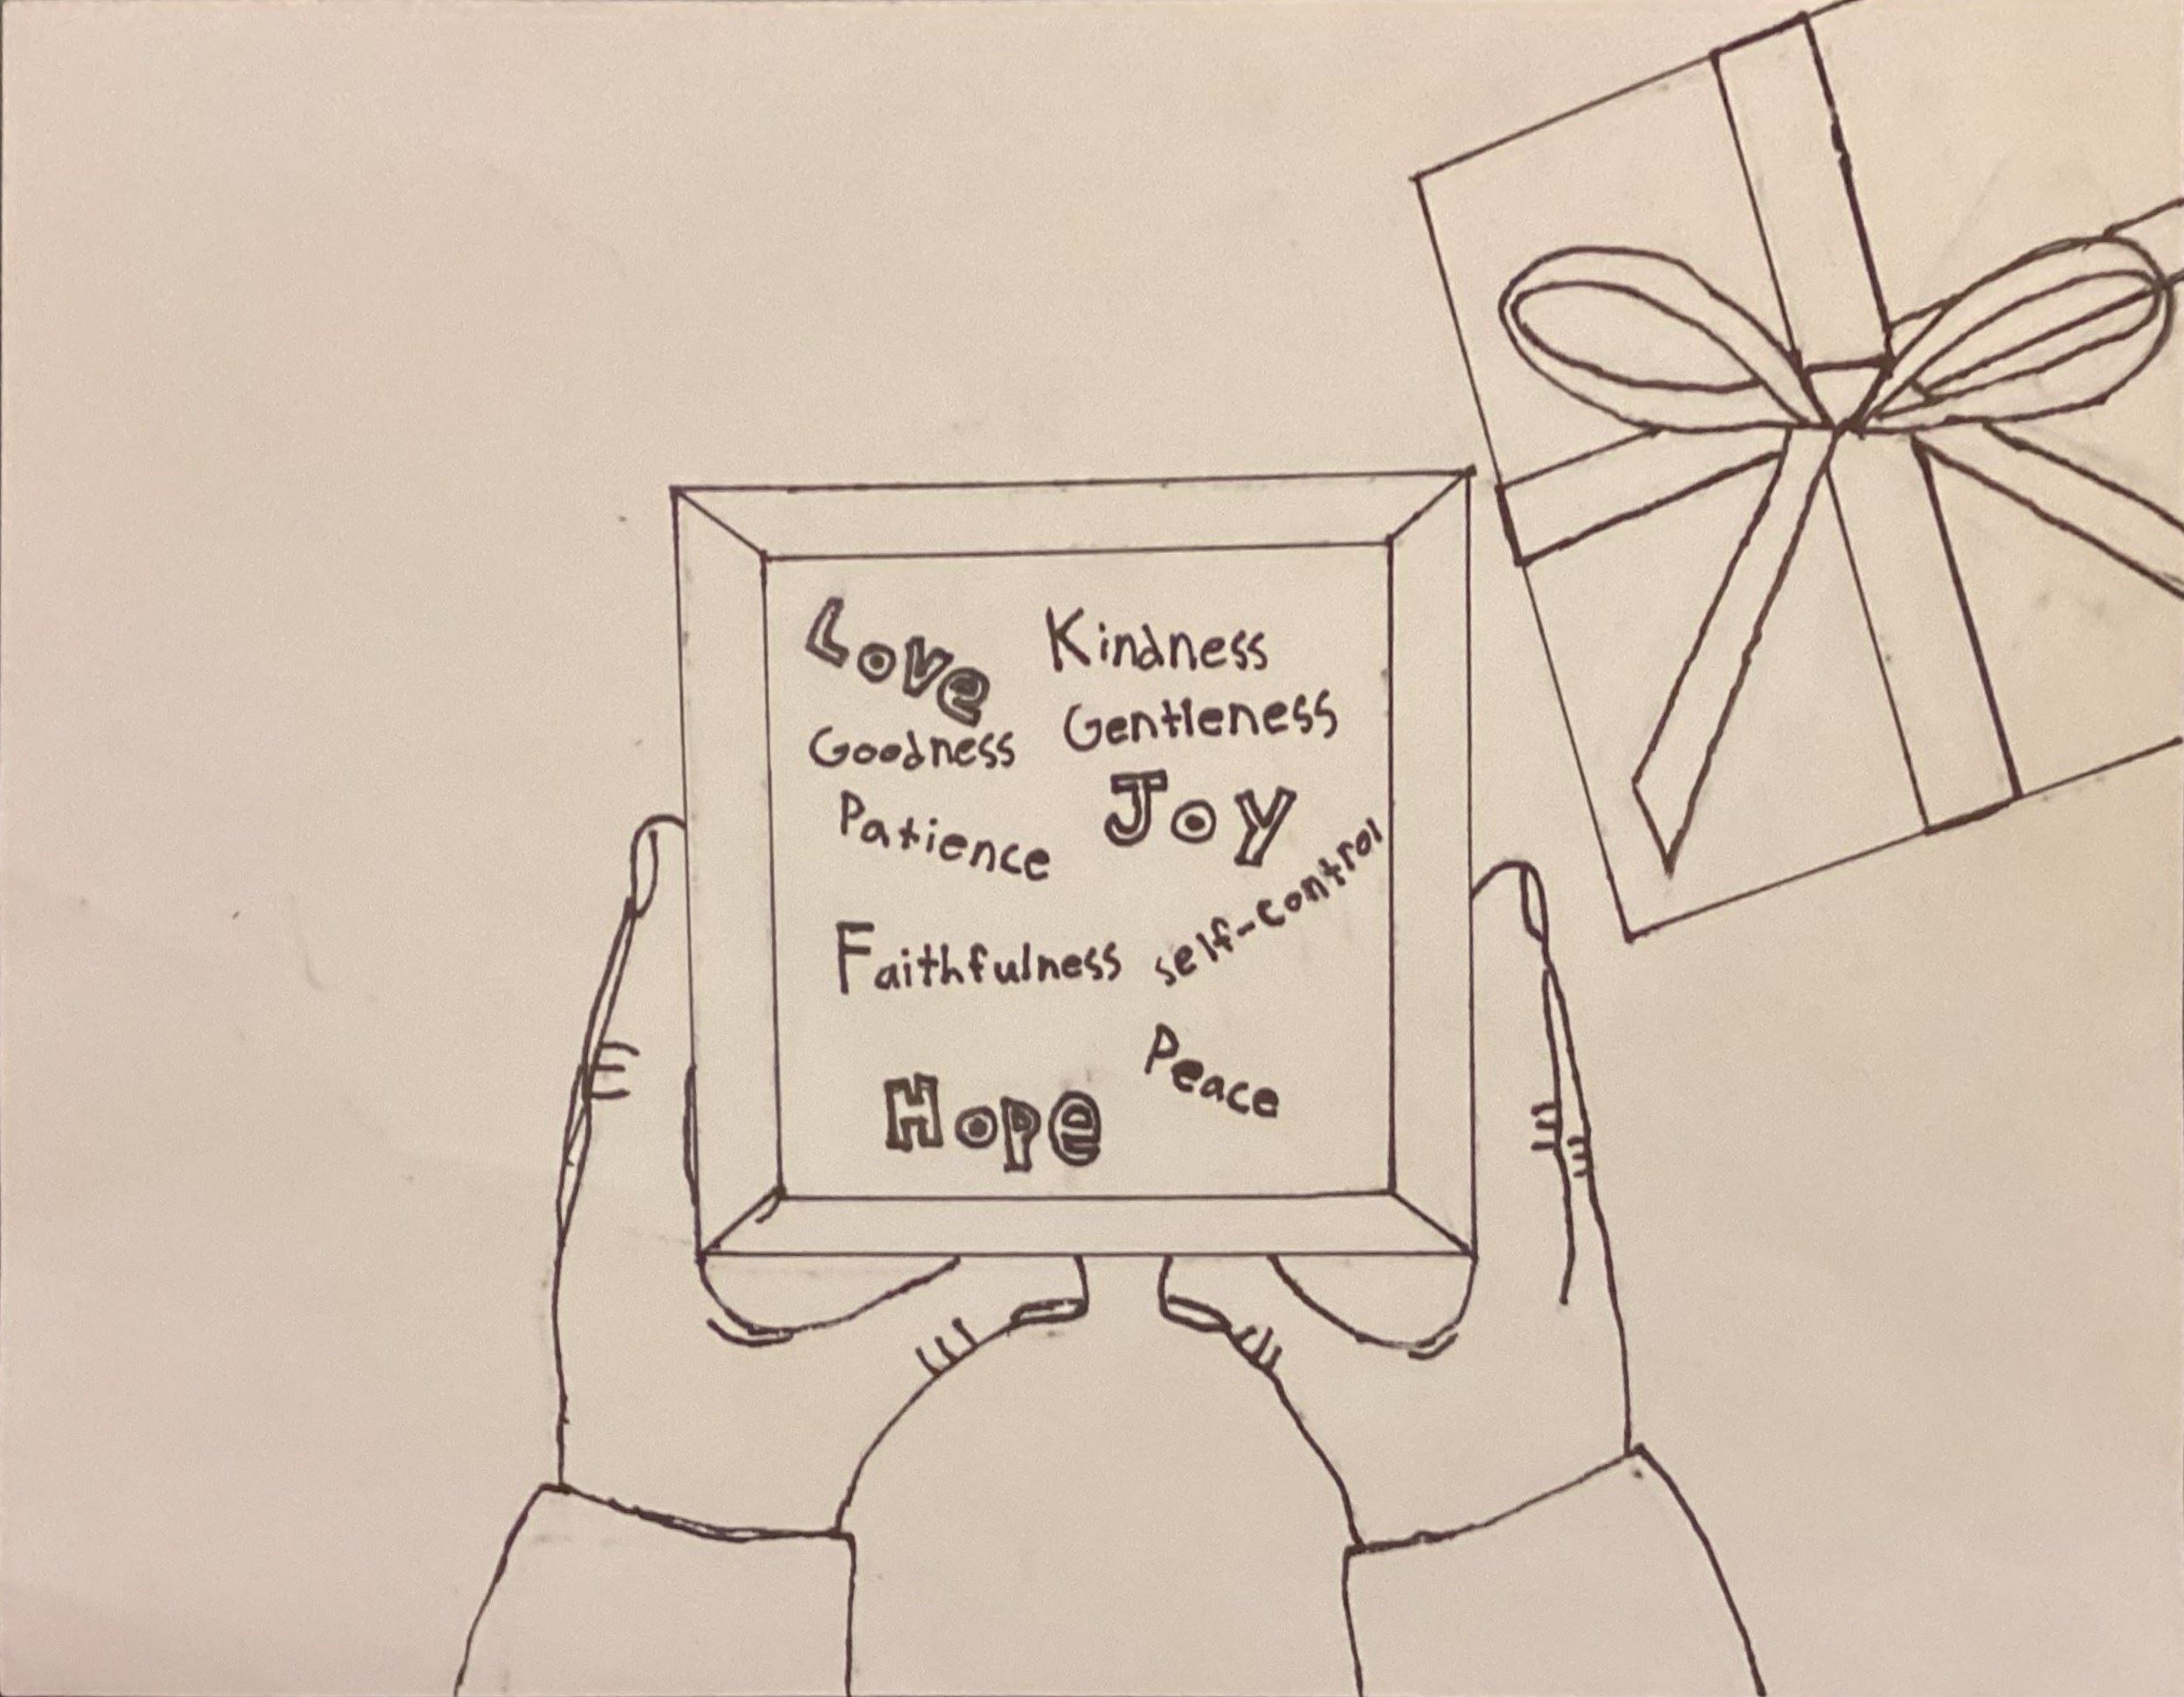 Love Kindness
Goodness Gentleness
Patience Joy
Faithfulness self-control
Hope Peace